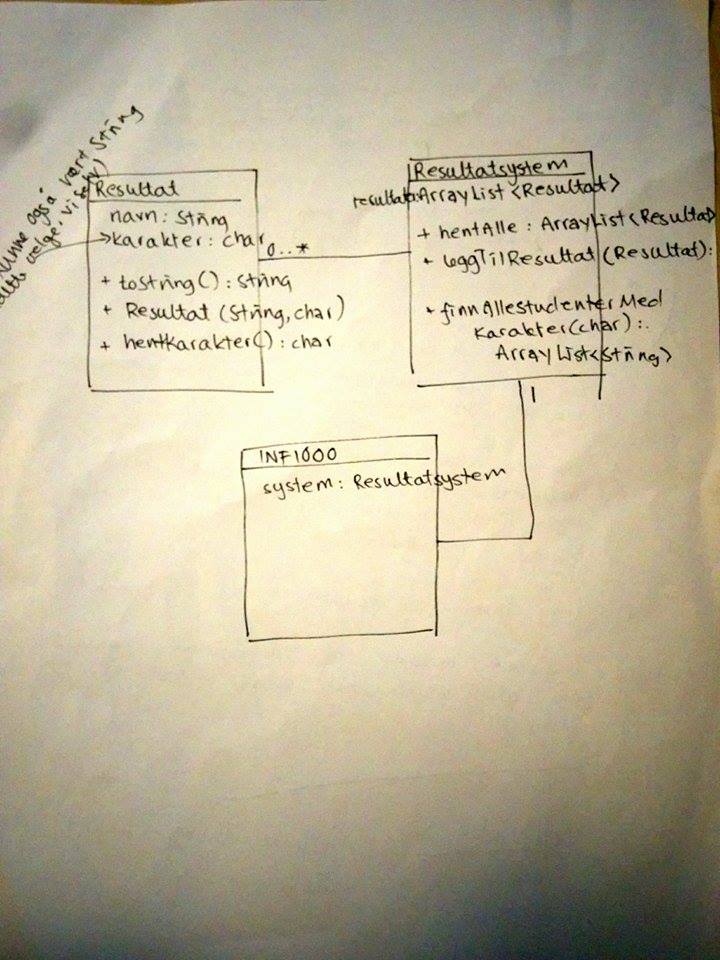 unne også vært String
velge, vi selv)
Resultat
navn: String
karakter: char
+ toString(): String
+ Resultat (String, char)
+ hentKarakter(): char
0..*
Resultatsystem
resultater: ArrayList<Resultat>
+ hentAlle: ArrayList<Resultat>
+ leggTilResultat (Resultat):
+ finnAlleStudenterMed
Karakter(char):
ArrayList<String>
1
INF1000
system: Resultatsystem